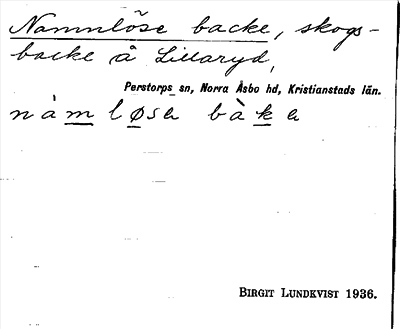 Namnlöse backe, skogs-
backe å Lillaryd,
Perstorps sn, Norra Åsbo hd, Kristianstads län.
nàmløsə bàkə
BIRGIT LUNDKVIST 1936.